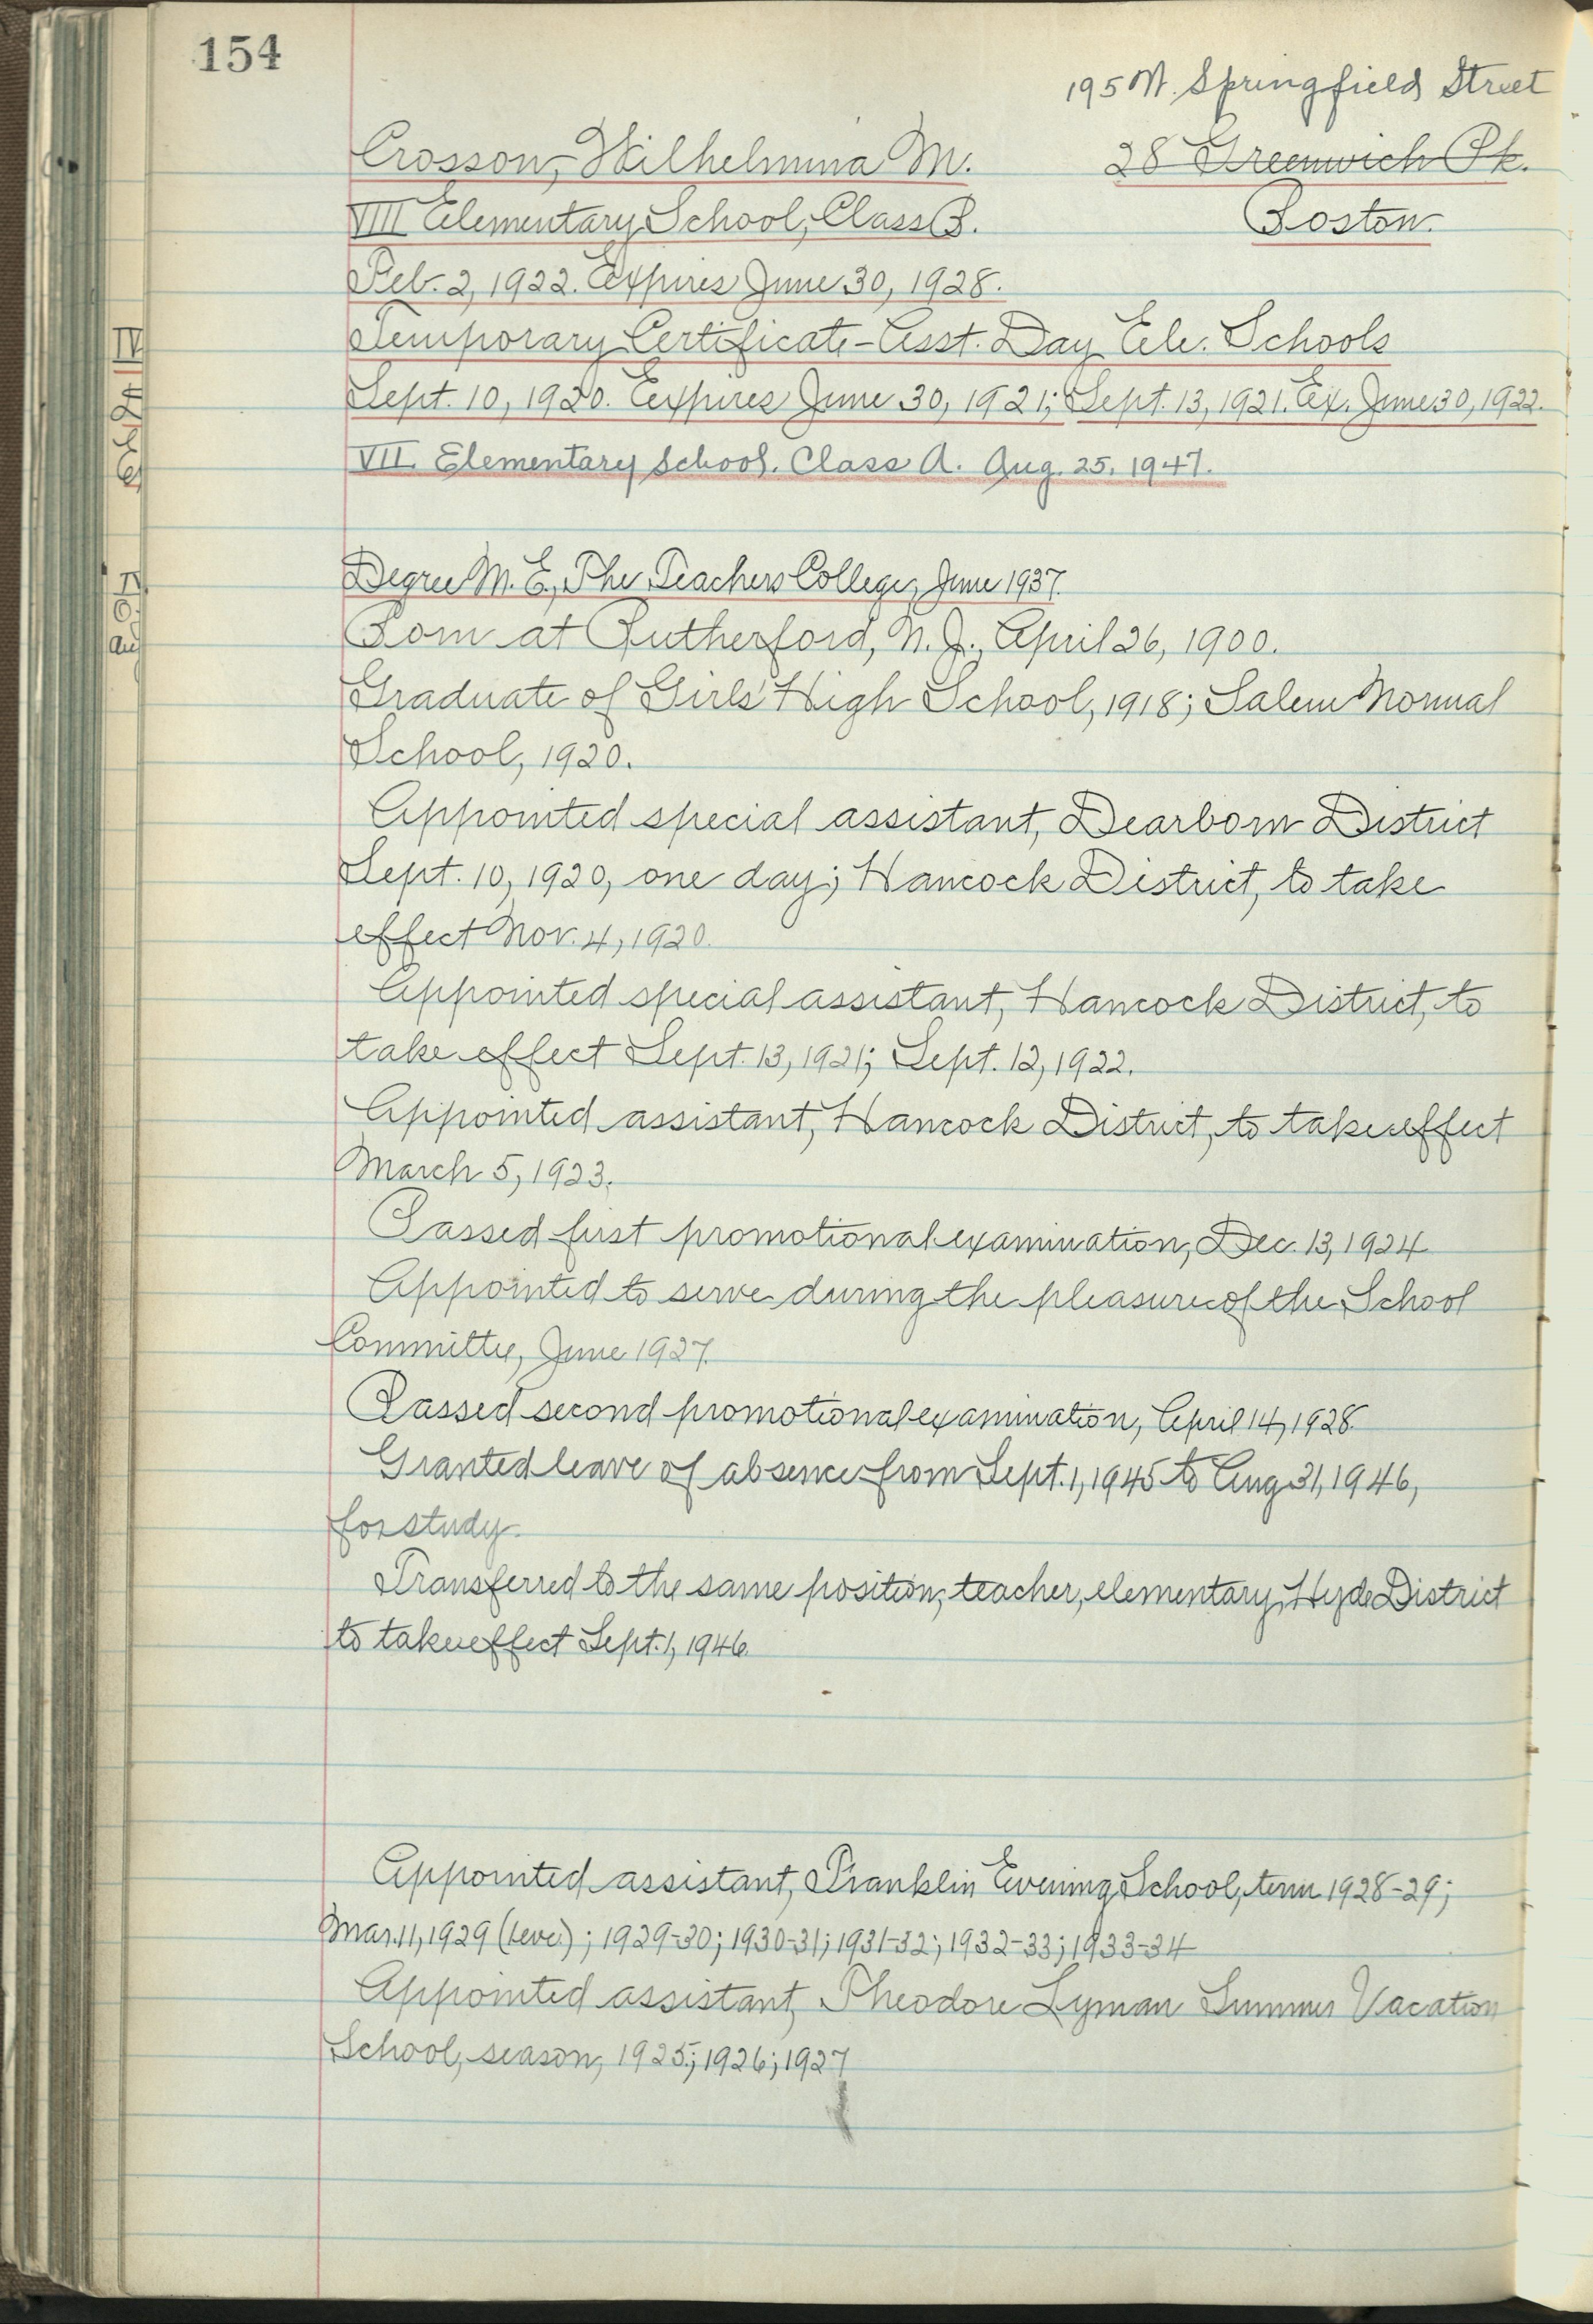 154
195 W. Springfield Street
Crosson, Wilhelmina M.
28 Greenwich Pk.
VIII Elementary School, Class B.
Boston.
Feb. 2, 1922. Expires June 30, 1928.
Temporary Certificate - Asst. Day Ele. Schools
Sept. 10, 1920. Expires June 30, 1921; Sept. 13, 1921. Ex. June 30, 1922.
VII. Elementary School. Class A. Aug. 25, 1947.
Degree M. E., The Teachers College, June 1937.
Born at Rutherford, N. J., April 26, 1900.
Graduate of Girls' High School, 1918; Salem Normal
School, 1920.
Appointed special assistant, Dearborn District
Sept. 10, 1920, one day; Hancock District, to take
effect Nov. 4, 1920.
Appointed special assistant, Hancock District, to
take effect Sept. 13, 1921; Sept. 12, 1922.
Appointed assistant, Hancock District, to take effect
March 5, 1923.
Passed first promotional examination, Dec. 13, 1924
Appointed to serve during the pleasure of the School
Committee, June 1927.
Passed second promotional examination, April 14, 1928.
Granted leave of absence from Sept. 1, 1945 to Aug 31, 1946,
for study.
Transferred to the same position, teacher, elementary, Hyde District
to take effect Sept. 1, 1946.
Appointed assistant, Franklin Evening School, term 1928-29;
Mar. 11, 1929 ; 1929-30; 1930-31; 1931-32; 1932-33; 1933-34
Appointed assistant, Theodore Lyman Summer Vacation
School, season, 1925; 1926; 1927